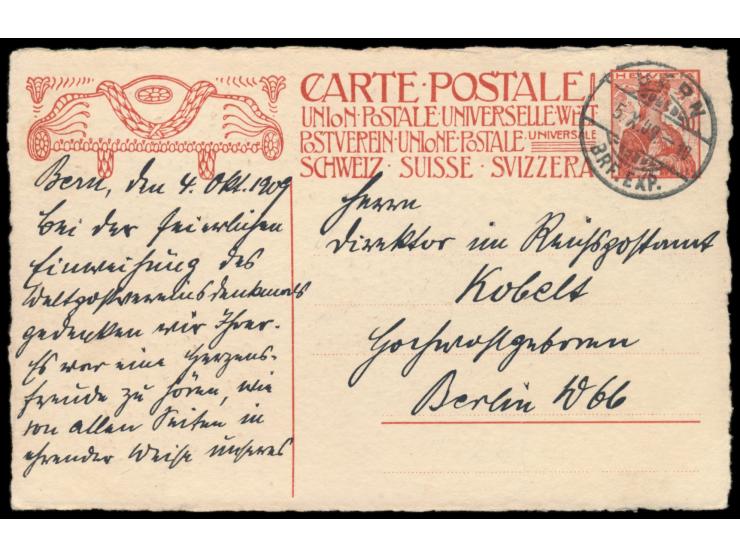 CARTE·POSTALE!
UNION·POSTALE·UNIVERSELLE·WELT
POSTVEREIN·UNIONE·POSTALE· UNIVERSALE
SCHWEIZ · SUISSE · SVIZZERA
HELVETIA
BERN
5.X.09.
BRF. EXP.
Bern, den 4. Okt. 1909
Bei der feierlichen
Einweihung des
Weltpostvereinsdenkmals
gedenken wir Ihrer.
Es war eine Herzens-
freude zu hören, wie
von allen Seiten in
ehrender Weise unseres
Herrn
Direktor im Reichspostamt
Kobelt
Hochwohlgeboren
Berlin W66